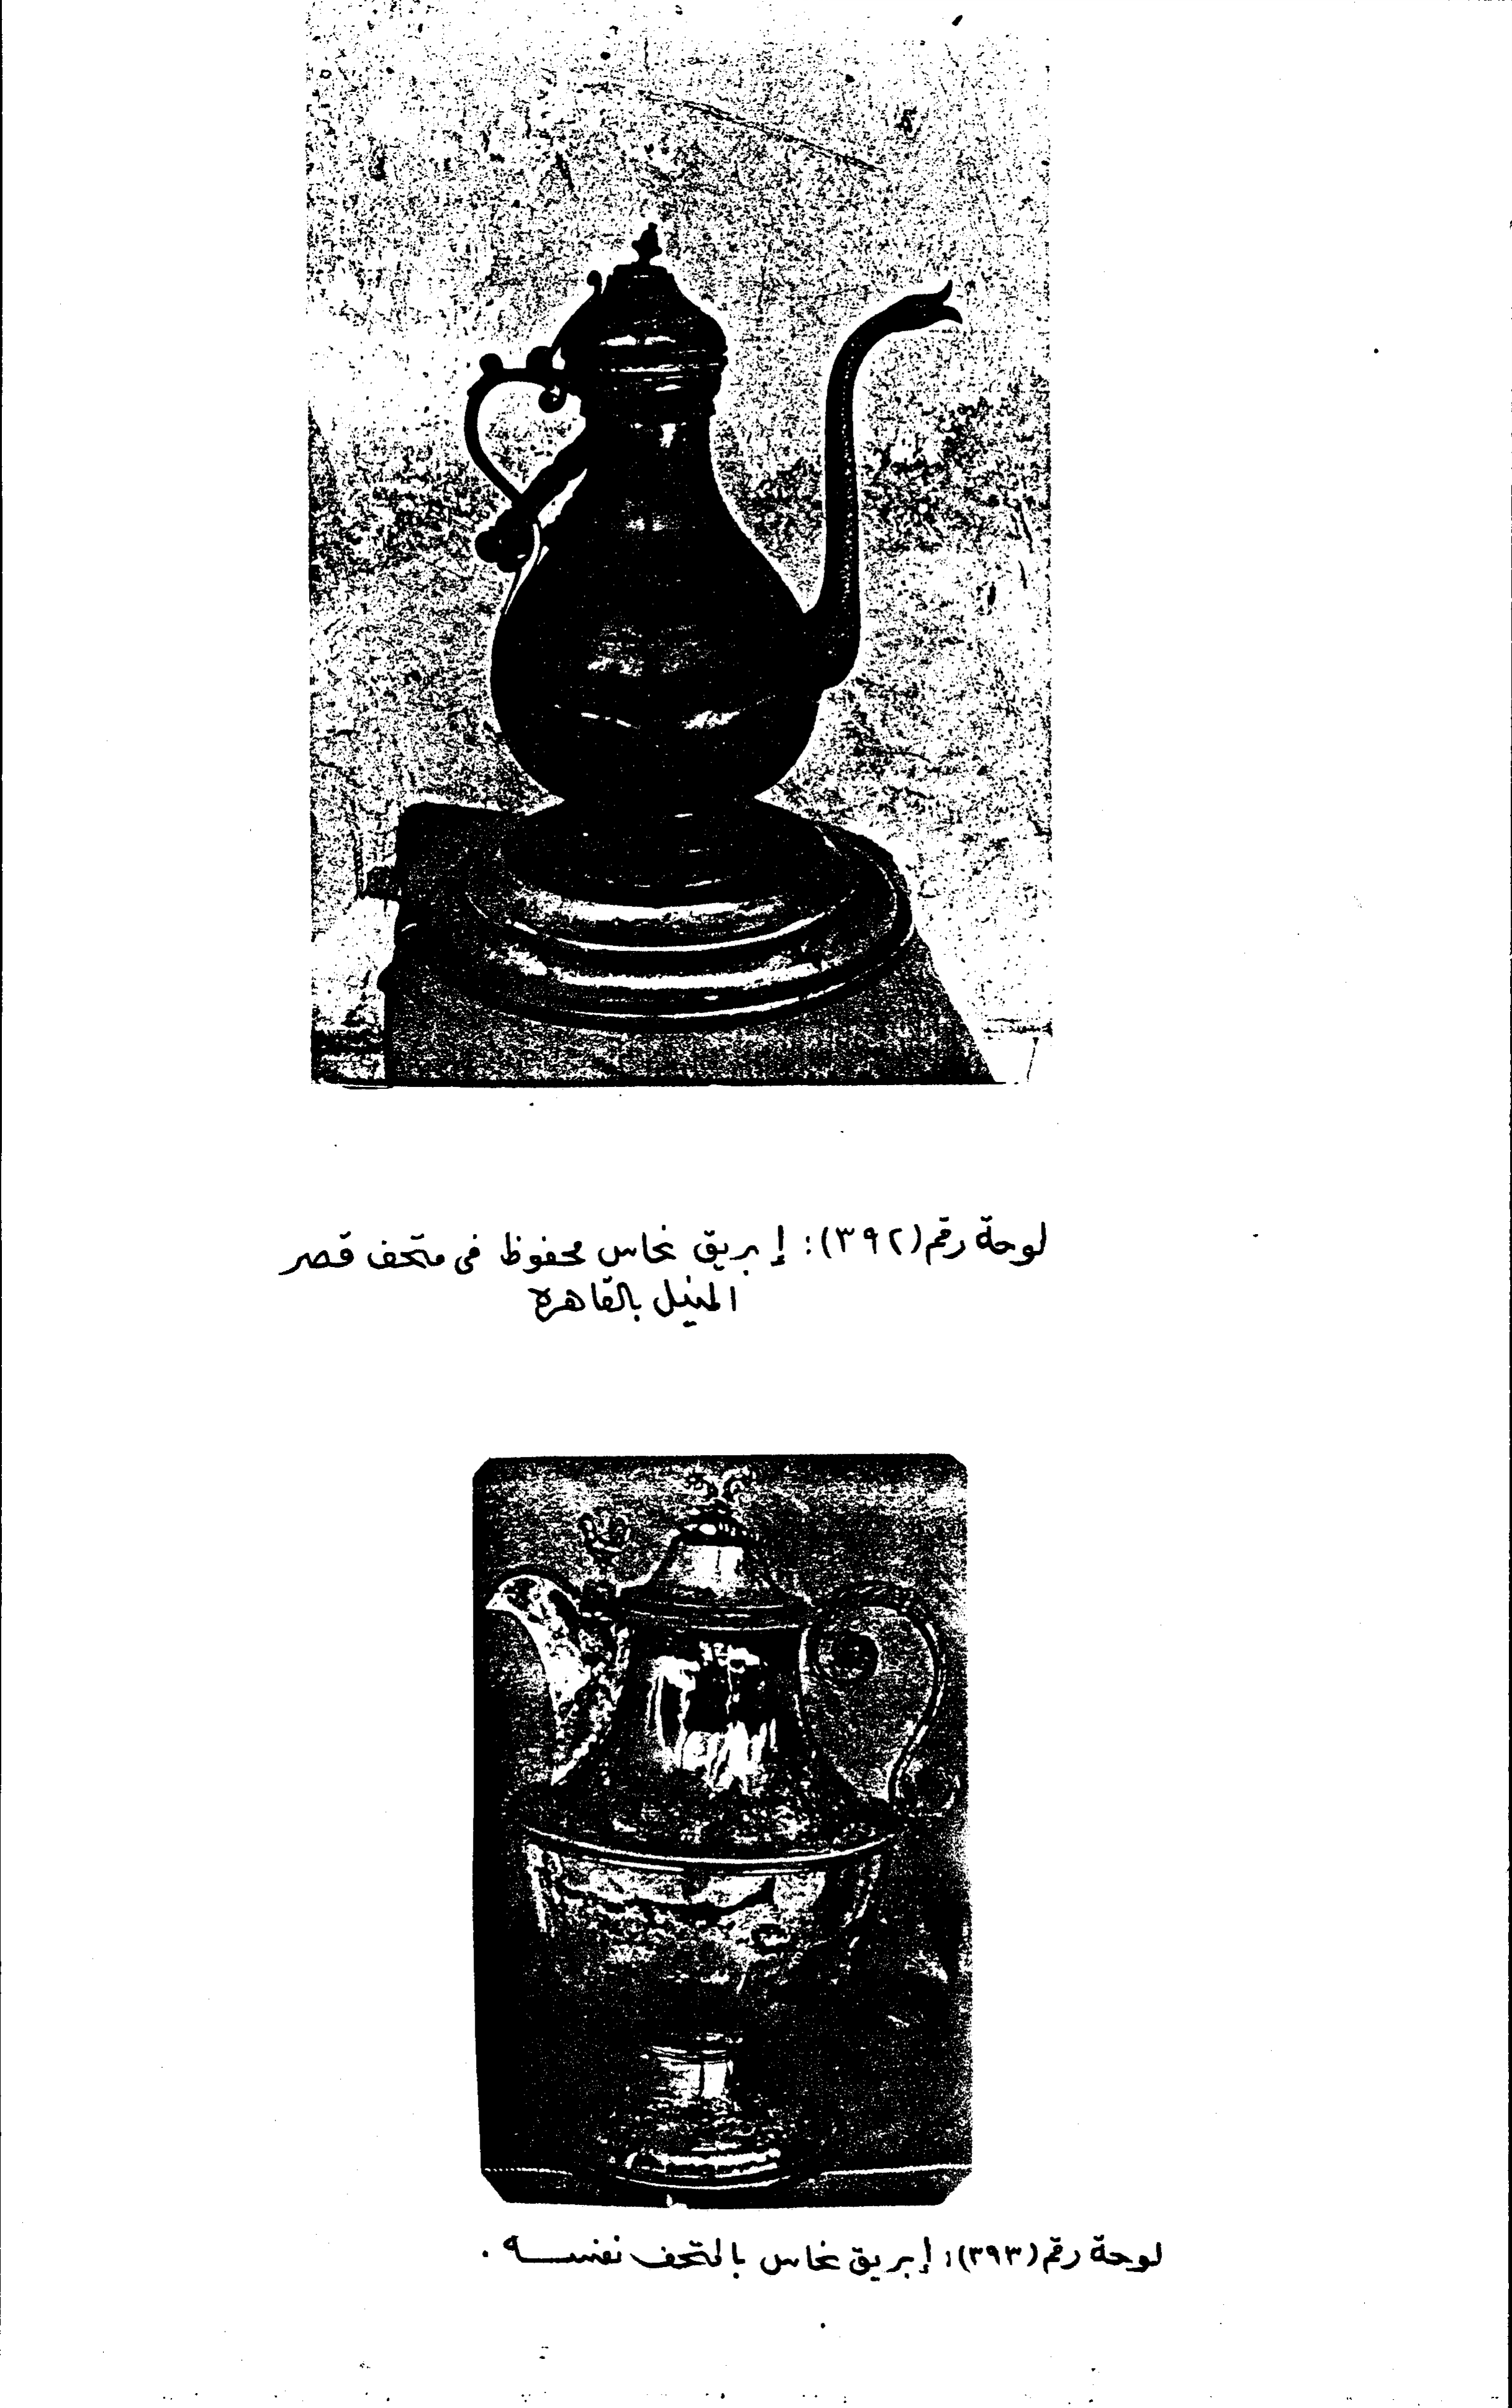 لوحة رقم (٣٩٢): إبريق نحاس محفوظ فى متحف قصر
المنيل بالقاهرة
لوحة رقم (٣٩٣): إبريق نحاس بالمتحف نفسه .